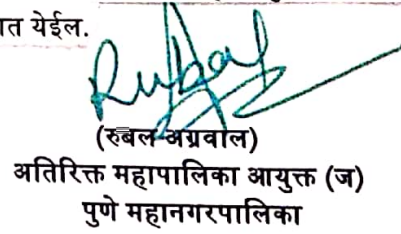 ात येईल.
Rubal
(रुबल अग्रवाल)
अतिरिक्त महापालिका आयुक्त (ज)
पुणे महानगरपालिका